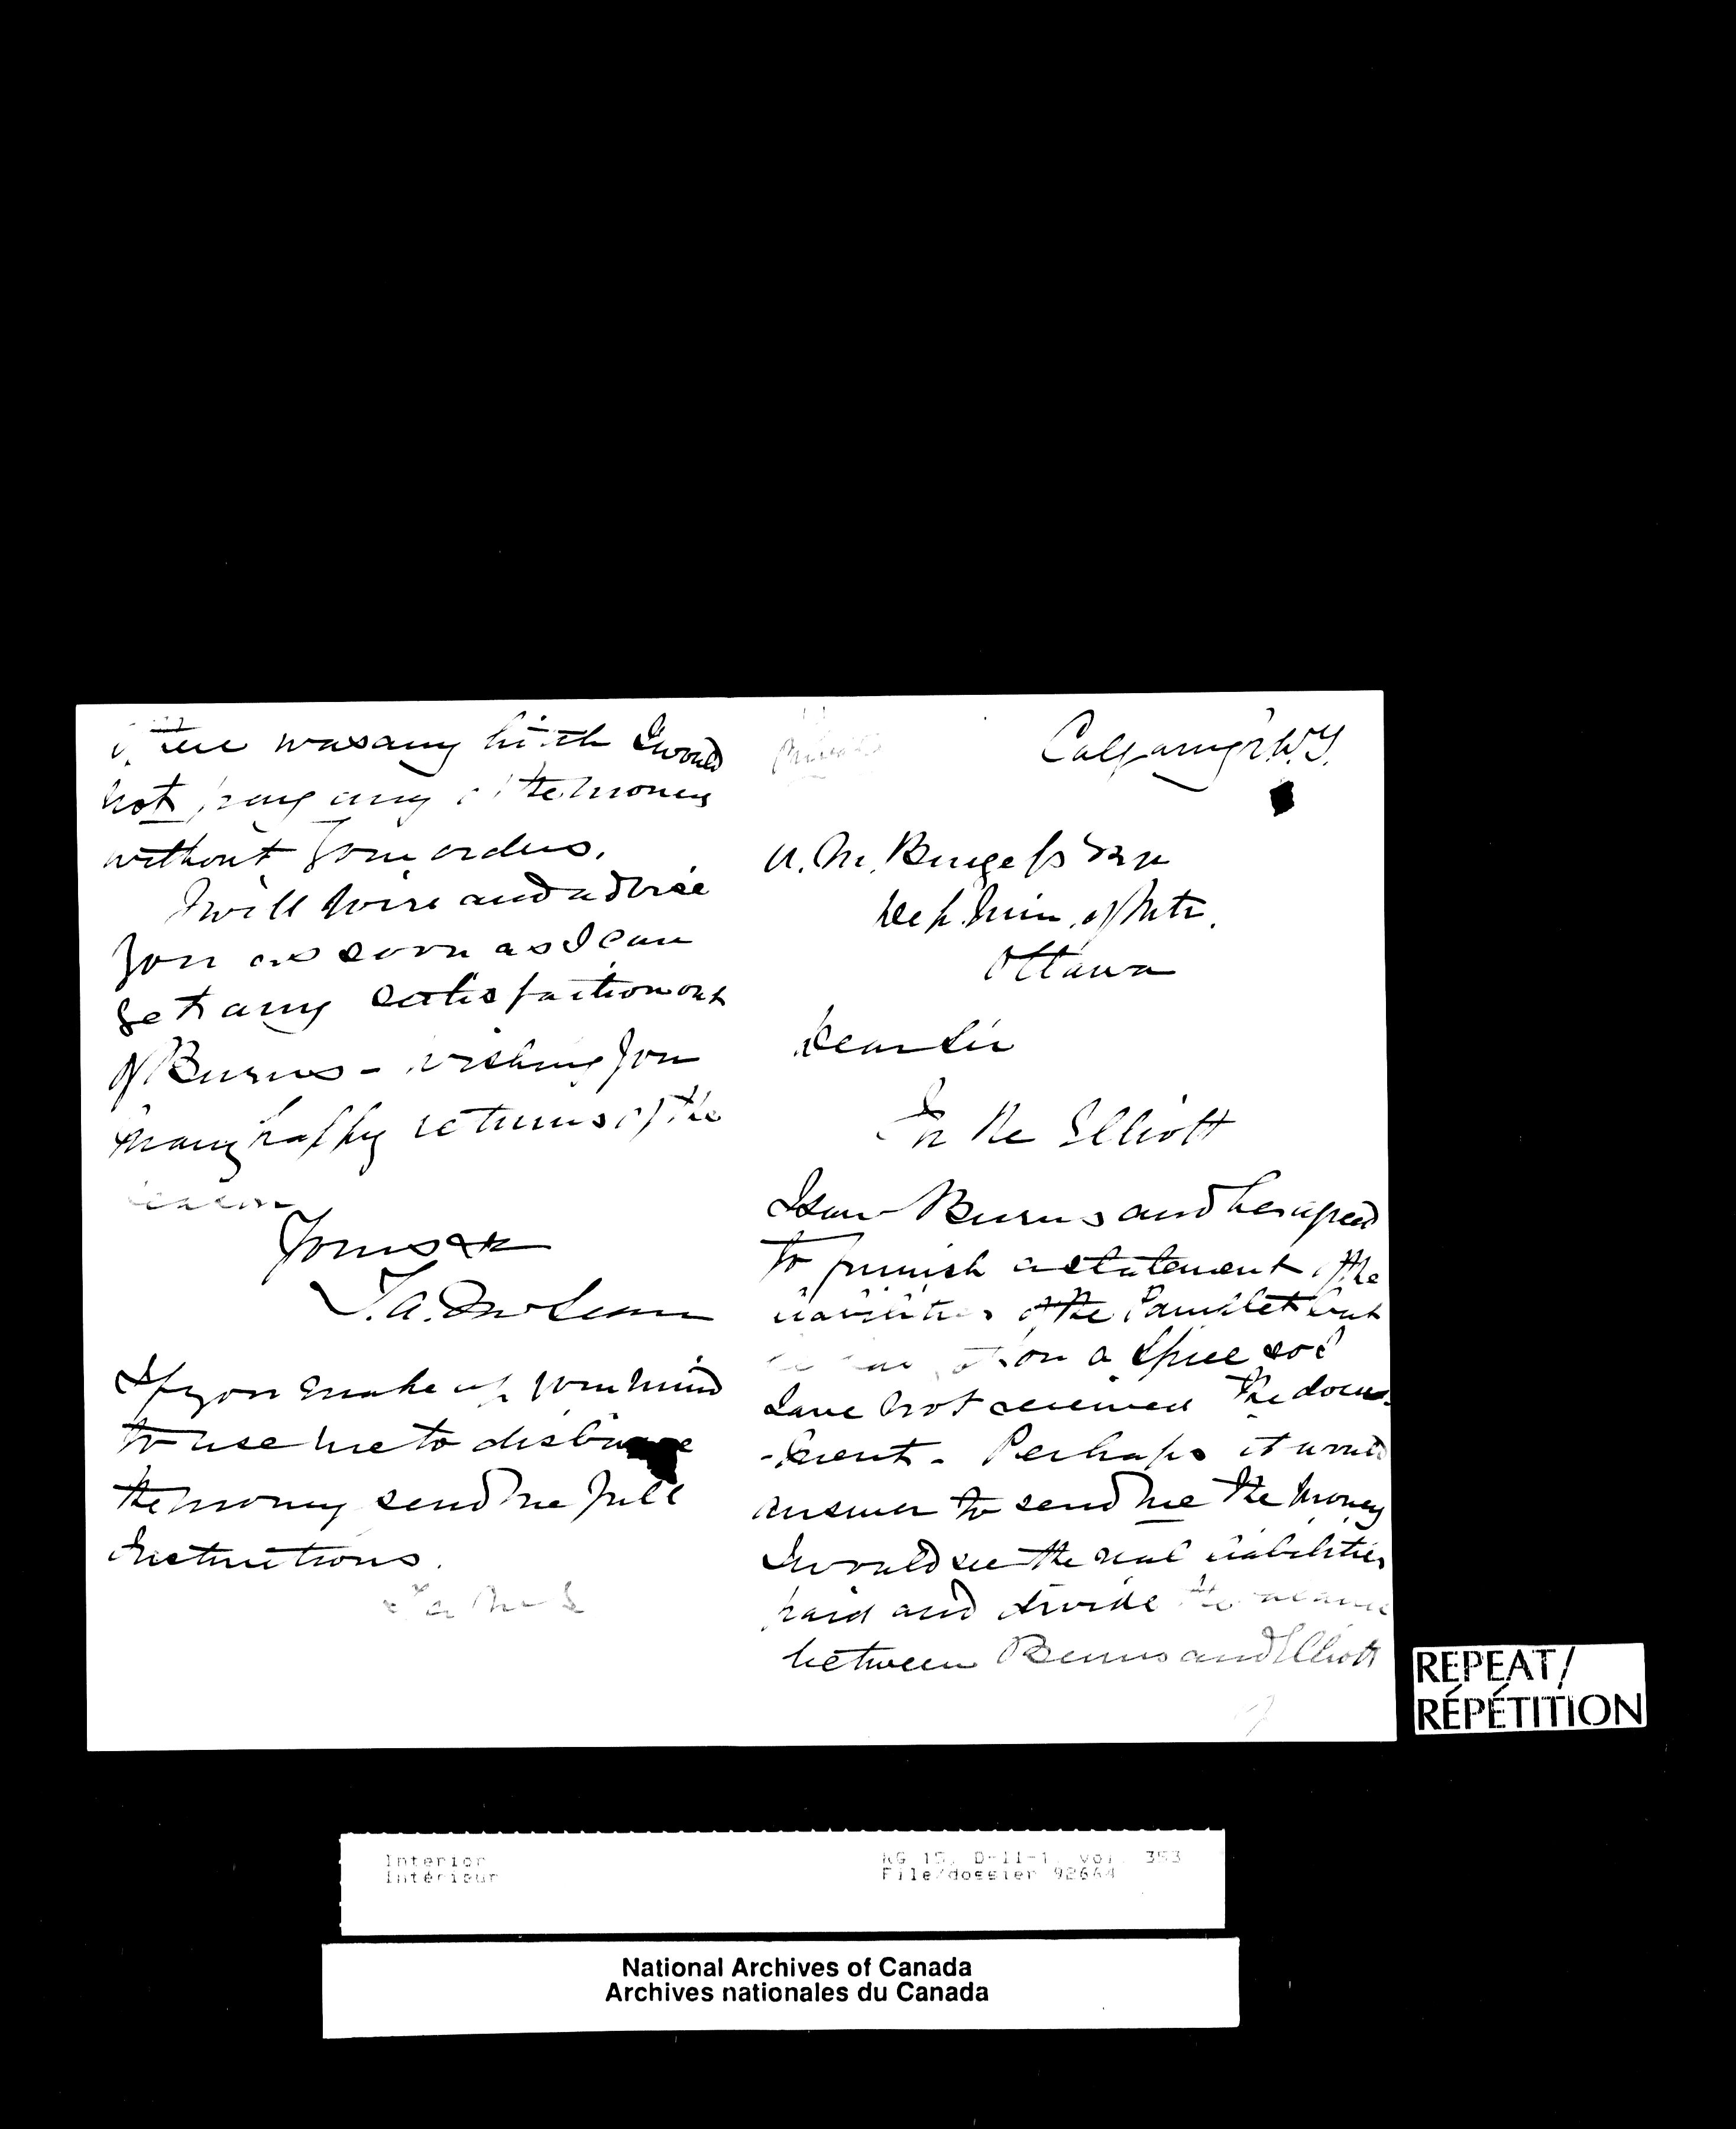 Private
Calgary N.W.T.
A. M. Burgess Esq
Dep. Min. of Intr.
Ottawa
Dear Sir
In Re Elliott
I saw Burns and he agreed
to furnish a statement of the
liabilities of the Pamphlet but
on a spree so I
have not received the docu-
-ment - Perhaps it would
answer to send me the money
I would see the real liabilities
paid and divide the balance
between Burns and Elliott
if there was any hitch I would
not pay any of the money
without your orders.
I will wire and advise
you as soon as I can
get any satisfaction out
of Burns - wishing you
many happy returns of the
season
Yours &c
T. A. McLean
If you make up your mind
to use me to disburse
the money send me full
instructions.
T A McL
REPEAT/
RÉPÉTITION
Interior
Intérieur
RG 15, D-II-1, vol. 353
File/dossier 92664
National Archives of Canada
Archives nationales du Canada